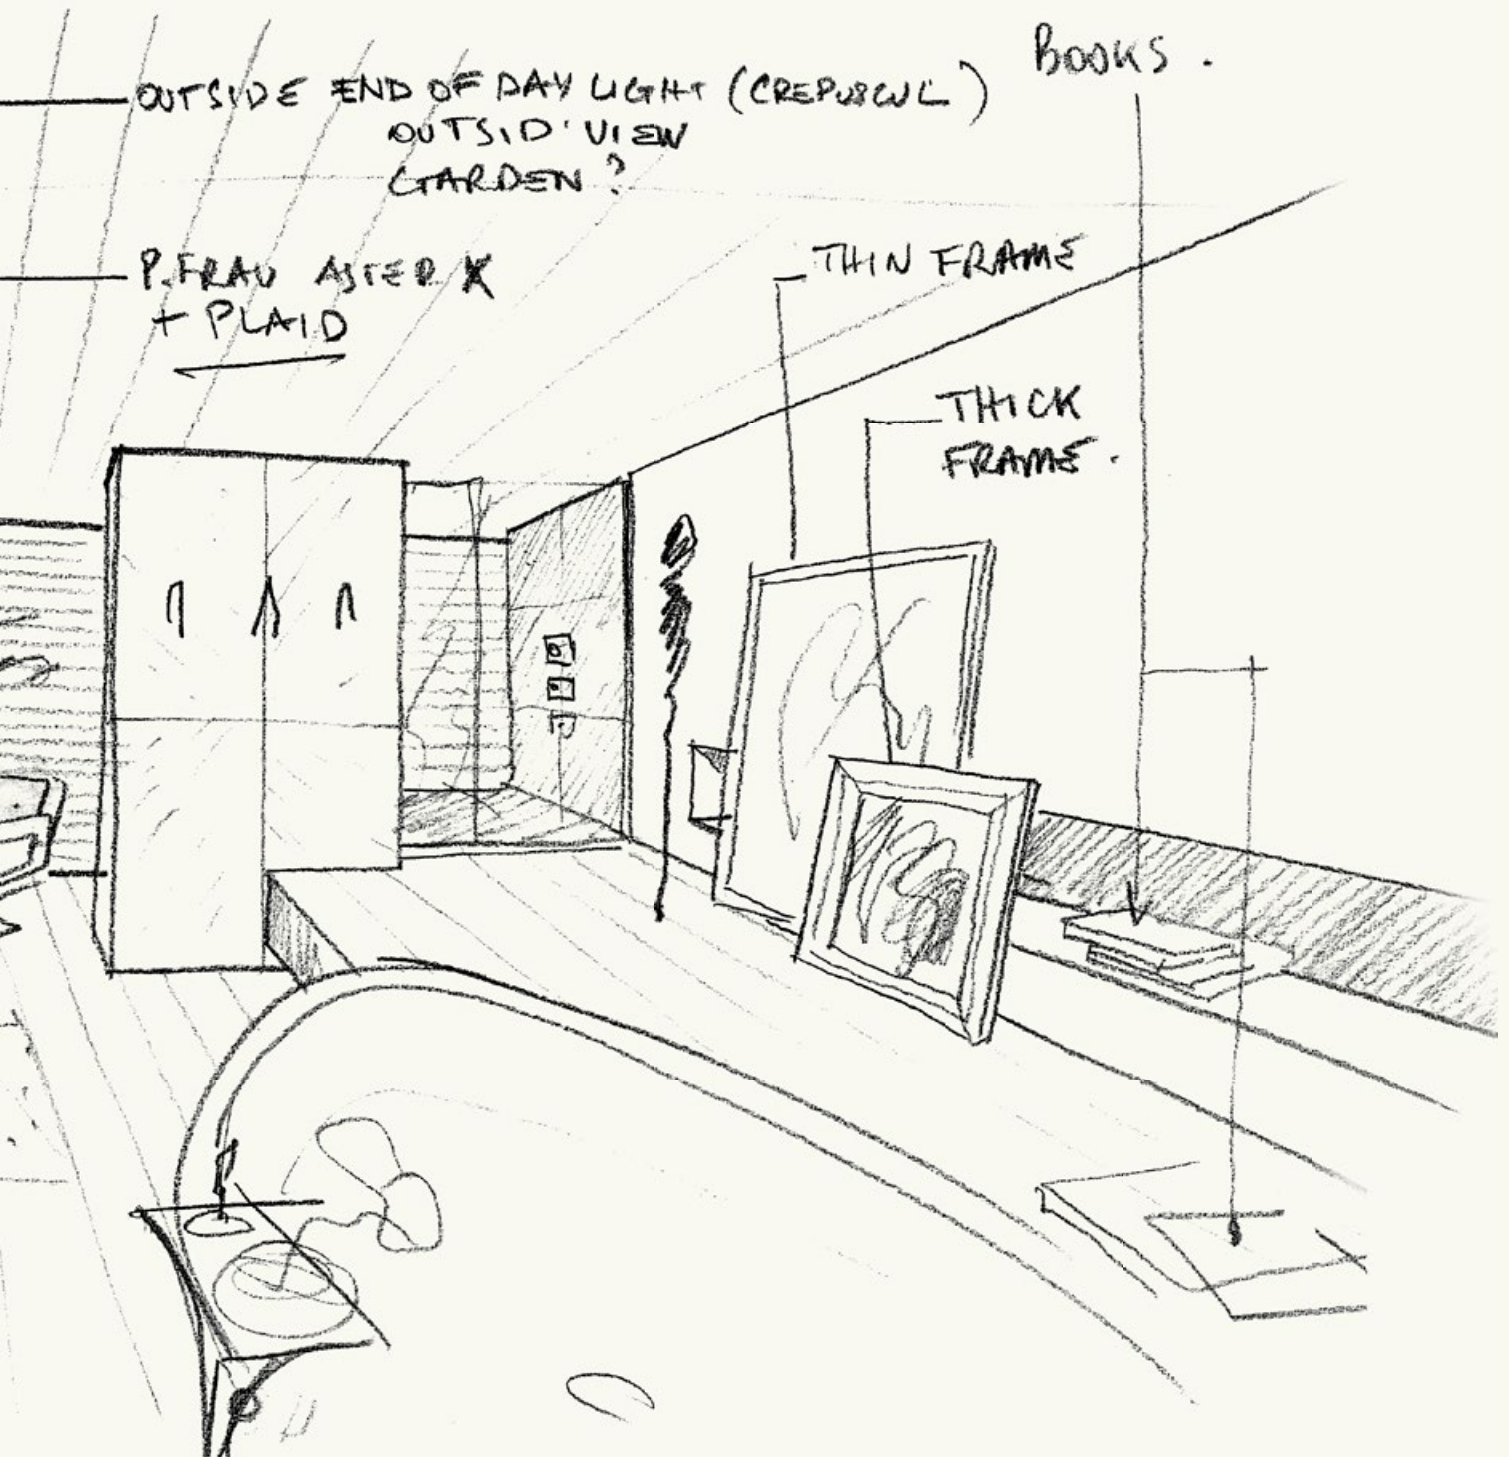 BOOKS.
OUTSIDE END OF DAY LIGHT (CREPUSCUL)
OUTSID' VIEW
GARDEN?
P.FRAU ASTER X
+ PLAID
THIN FRAME
THICK
FRAME.